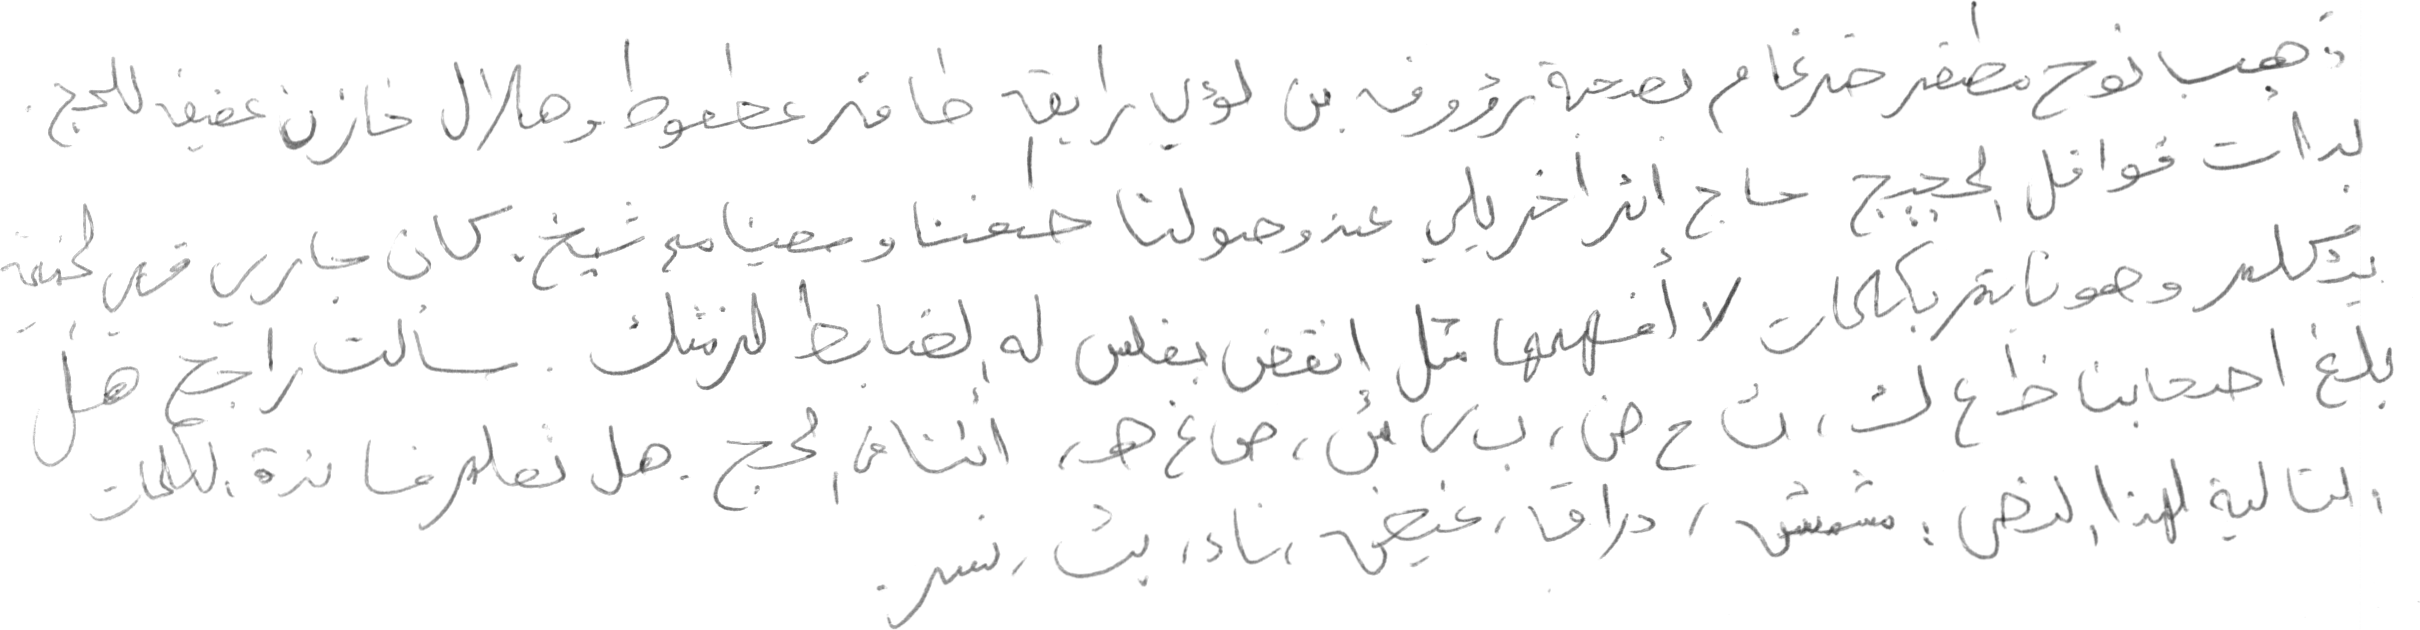 ذهب نوح مظفر ضرغام بصحبة رؤوف بن لؤي رايقة ظافر عظعوظ وهلال خازن عفيف للحج.
بدأت قوافل الحجيج حاج إثر أخر يلي عند وصولنا طعنا ومضينا مع شيخ. كان جاري قيس لحيته
يتكلم وهو نائم بكلمات لا أفهمها مثل إنقض بغلس له الضابط المزمثك. سألت راجح هل
بلغ اصحابنا ظ ع ك، ث ح ض، ب س ش، ص غ هـ، أثناء الحج. هل تعلم فائدة الكلمات
التالية لهذا النص: مشمش، دراق، غيض، ناء، بث، نسر.